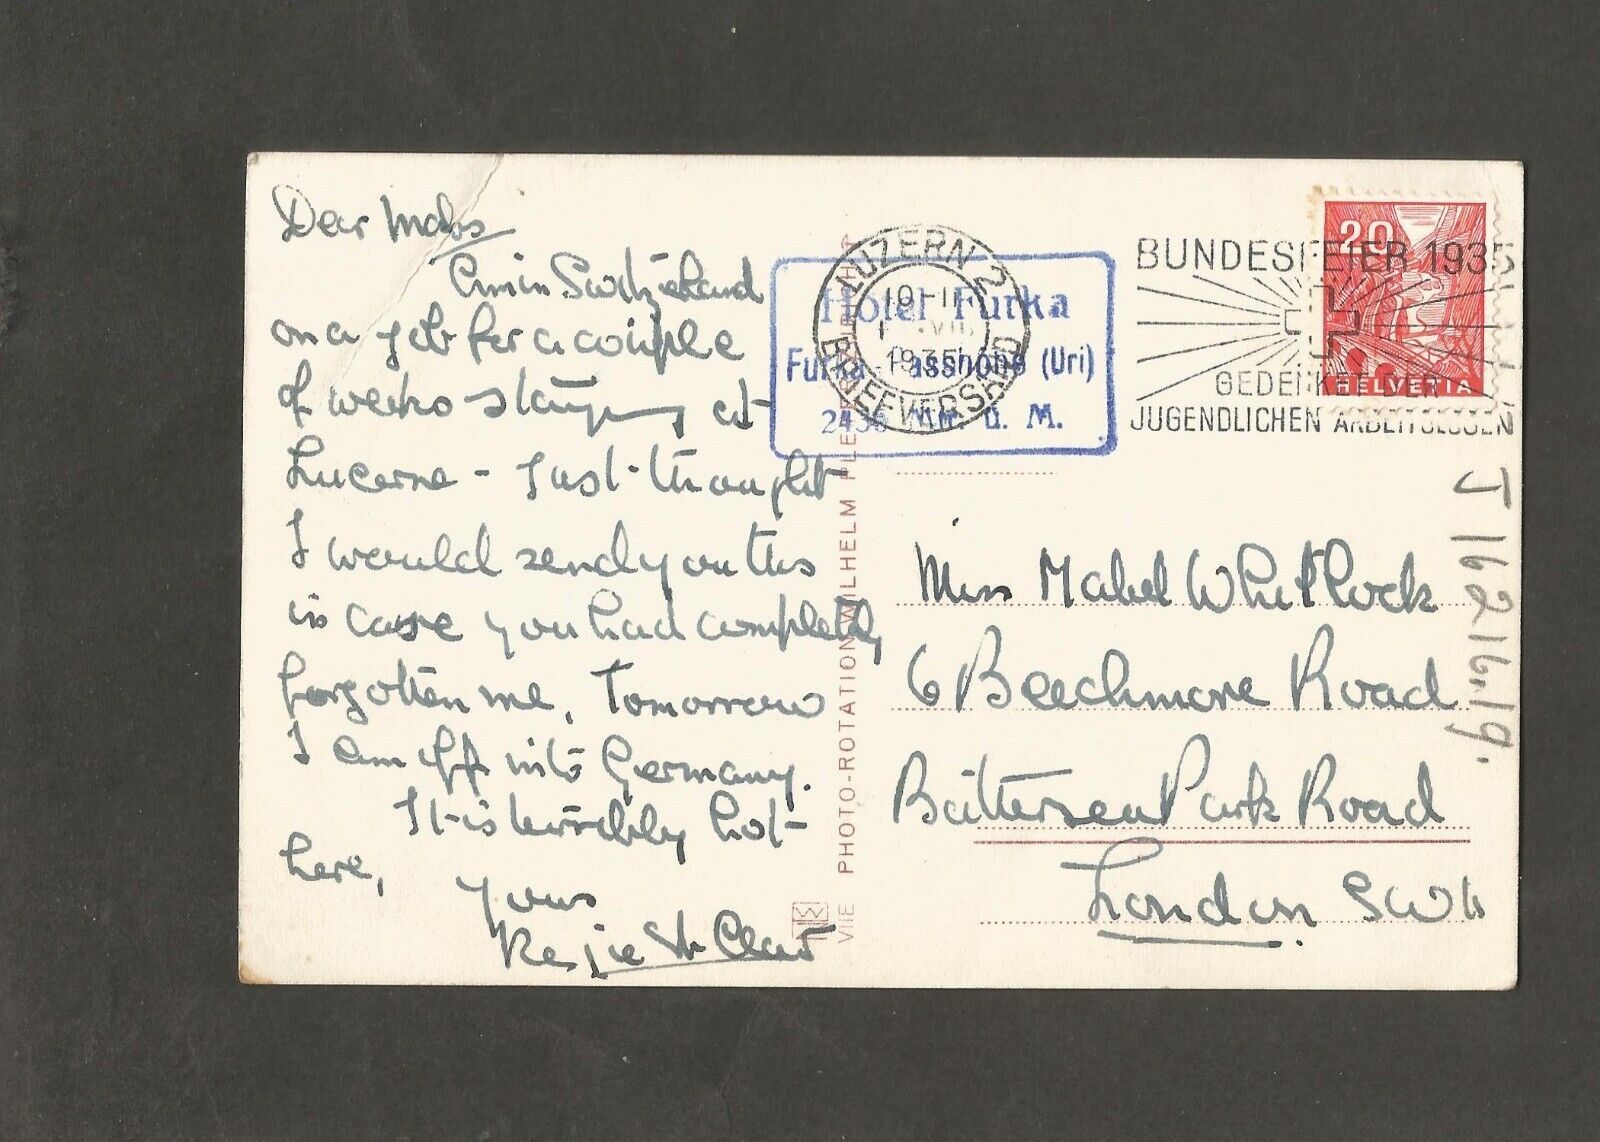 Dear Mabs
Am in Switzerland
on a job for a couple
of weeks staying at
Lucerne - Just thought
I would send you this
in case you had completely
forgotten me. Tomorrow
I am off into Germany.
It is terribly hot
here,
Yours
Regie St Clair
PHOTO-ROTATION WILHELM PLEYER ZÜRICH
VIIE
LUZERN 2
10-11
VII.
1935
BRIEFVERSAND
Hotel Furka
Furka-Passhöhe (Uri)
2436 Mtr. ü. M.
BUNDESFEIER 1935
GEDENKET DER
JUGENDLICHEN ARBEITSLOSEN
20
HELVETIA
Miss Mabel Whitlock
6 Beechmore Road
Battersea Park Road
London SW11
J 16216.19.